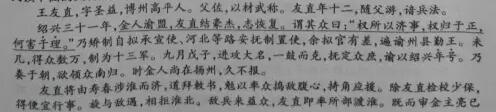 王友直，字圣益，博州高平人。父佐，以材武称。友直年十二，随父游，谙兵法。
绍兴三十一年，金人渝盟，友直结豪杰，志恢复。谓其众曰：“权所以济事，权归于正，
何害于理。”乃矫制自拟承宣使、河北等路安抚制置使，余拟官有差，遍谕州县勤王。未
几，得众数万，制为十三军。九月戊子，进攻大名，一鼓而克，抚定众庶，谕以绍兴年号。乃
奏于朝，欲领众南归。时金人尚在扬州，久不报。
友直将由寿春涉淮而济，道拜敕书，勉以率众捣敌腹心，持角应援。除友直检校少保，
得便宜行事。旋与敌遇，相拒淮北。敌兵来益众，友直即率所部渡淮。既而审金主亮已